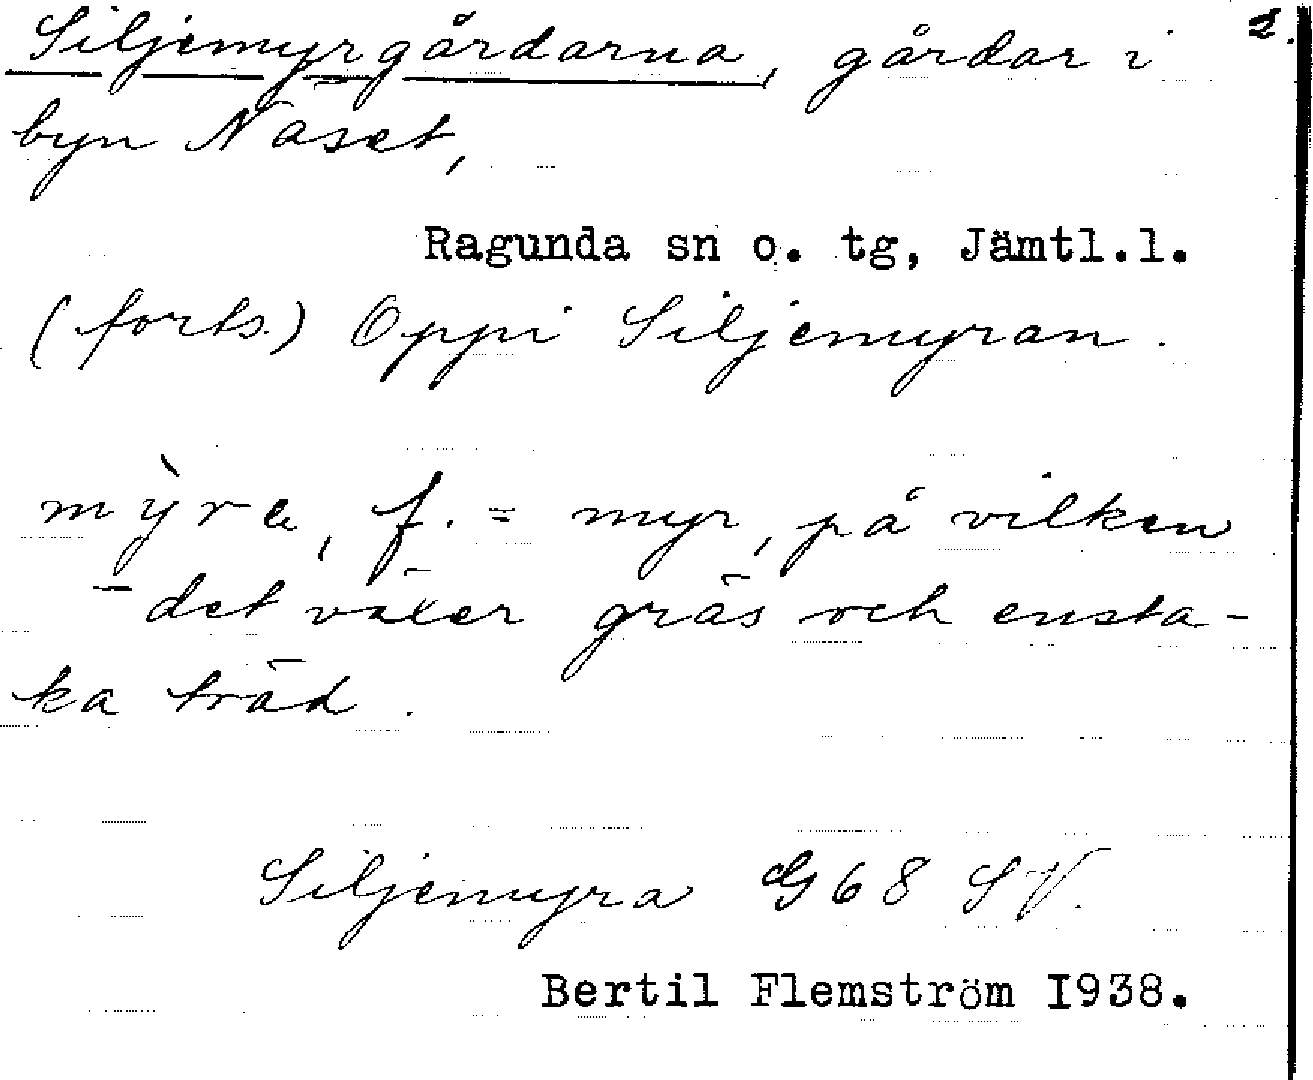 Siljemyrgårdarna, gårdar i 2.
byn Näset,
Ragunda sn o. tg, Jämtl.l.
(forts.) Oppi Siljemyran.
mỳra, f. = myr, på vilken
det växer gräs och ensta-
ka träd.
Siljemyra G 68 SV.
Bertil Flemström 1938.